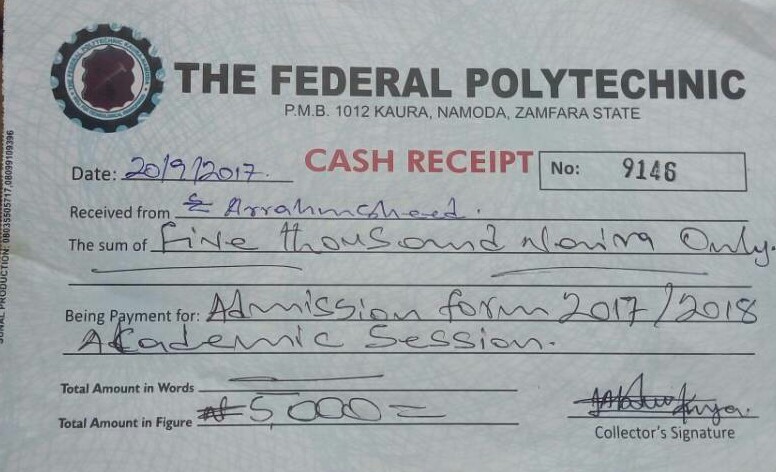 THE FEDERAL POLYTECHNIC
P.M.B. 1012 KAURA, NAMODA, ZAMFARA STATE
CASH RECEIPT
No: 9146
Date: 20/9/2017.
Received from
The sum of Five thousand Naira Only.
Being Payment for: Admission form 2017/2018
Akademic Session.
Total Amount in Words
Total Amount in Figure ₦5,000=
Collector's Signature
PRODUCTION: 08035505717,08099109396